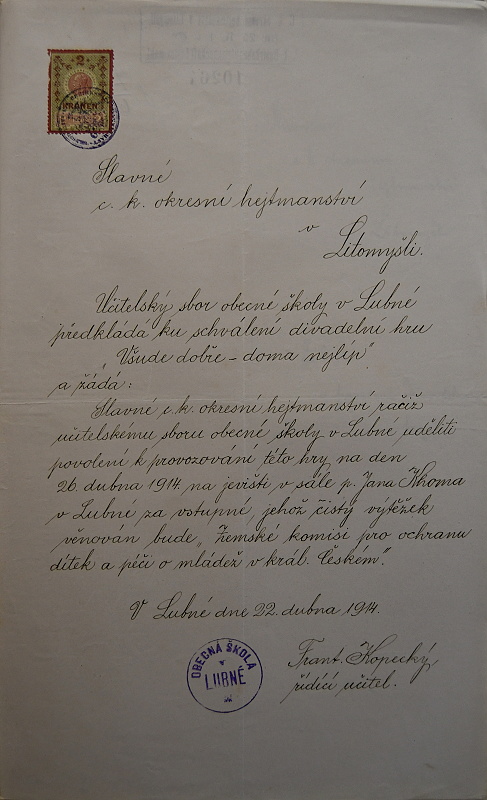 2
KRONEN
Slavné
c. k. okresní hejtmanství
v
Litomyšli.
Učitelský sbor obecné školy v Lubné
předkládá ku schválení divadelní hru
„Všude dobře – doma nejlíp“
a žádá:
Slavné c. k. okresní hejtmanství račiž
učitelskému sboru obecné školy v Lubné uděliti
povolení k provozování této hry na den
26. dubna 1914. na jevišti v sále p. Jana
v Lubné za vstupné, jehož čistý výtěžek
věnován bude „Zemské komisi pro ochranu
dítek a péči o mládež v král. Českém“.
V Lubné dne 22. dubna 1914.
OBECNÁ ŠKOLA
v
LUBNÉ
Frant. Kopecký
řídící učitel.